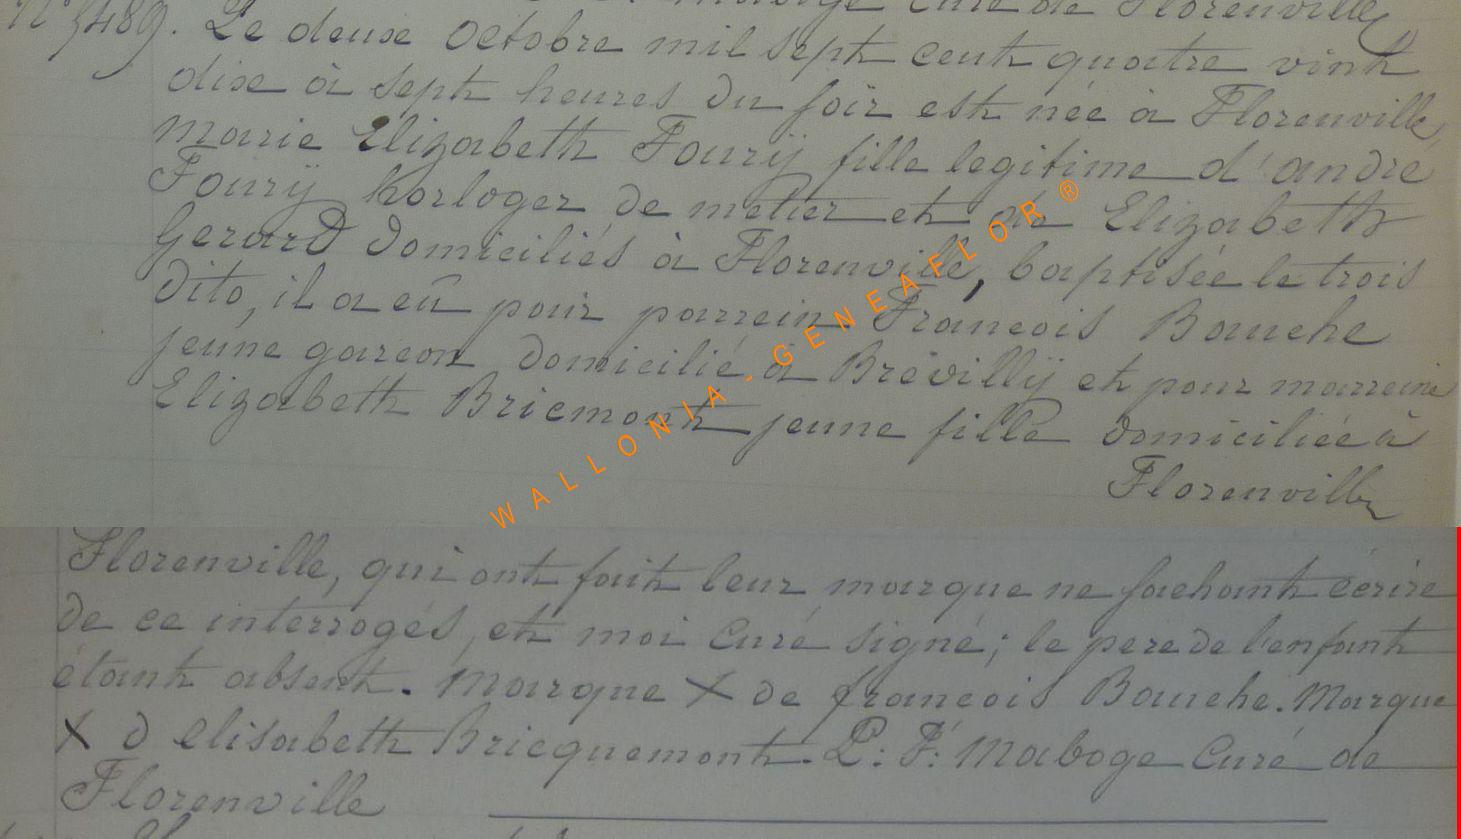 Maboge Curé de Florenville
N° 3489. Le deuxe Octobre mil sept cent quatre vint
dixe à sept heures du soir est née à Florenville,
Marie Elizabeth Fourÿ fille legitime d'andré
Fourÿ horloger de metier et de Elizabeth
Gerard Domiciliés à Florenville, baptisée le trois
dito, il a eû pour parrein Francois Bauche
jeune garcon Domicilié à Brévillÿ et pour marreine
Elizabeth Bricmont jeune fille domiciliée à
Florenville
WALLONIA - GENEAFLOR ®
Florenville, qui ont fait leur marque ne sachant écrire
de ce interrogés, et moi Curé signé; le pere de l'enfant
étant absent. Marque X de francois Bauche. Marque
X d elisabeth Bricquemont. P: F: Maboge Curé de
Florenville